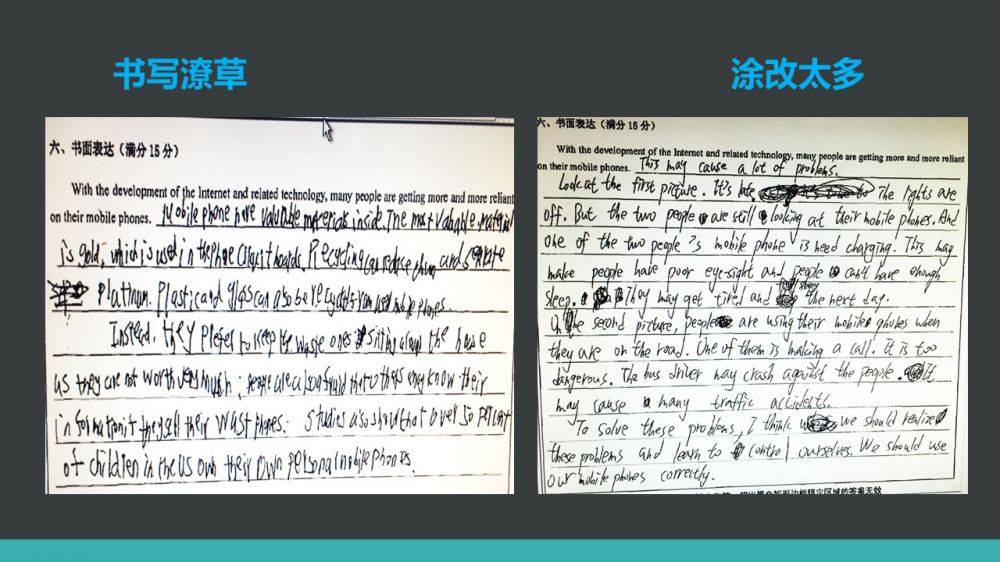 书写潦草
涂改太多
六、书面表达（满分 15 分）
With the development of the Internet and related technology, many people are getting more and more reliant
on their mobile phones. Mobile phone have valuable materials inside. The most valuable material
is gold, which is used in the phone circuit boards. Recycling can reduce and
platinum. Plastic and glass can also be recycled from used mobile phones.
Instead, they prefer to keep the waste ones sitting along the house
as they are not worth very much; people are also afraid that others may know their
information if they sell their wast phones. Studies also should that over 50 percent
of children in the US own their own personal mobile phones.
六、书面表达（满分 15 分）
With the development of the Internet and related technology, many people are getting more and more reliant
on their mobile phones. This may cause a lot of problems.
Look at the first picture. It's late. The lights are
off. But the two people are still looking at their mobile phones. And
one of the two people's mobile phone is need charging. This may
make people have poor eye-sight and people can't have enough
sleep. They may get tired and feel sleepy the next day.
On the second picture, people are using their mobile phones when
they are on the road. One of them is making a call. It is too
dangerous. The bus driver may crash against the people. It
may cause many traffic accidents.
To solve these problems, I think we should realize
these problems and learn to control ourselves. We should use
our mobile phones correctly.